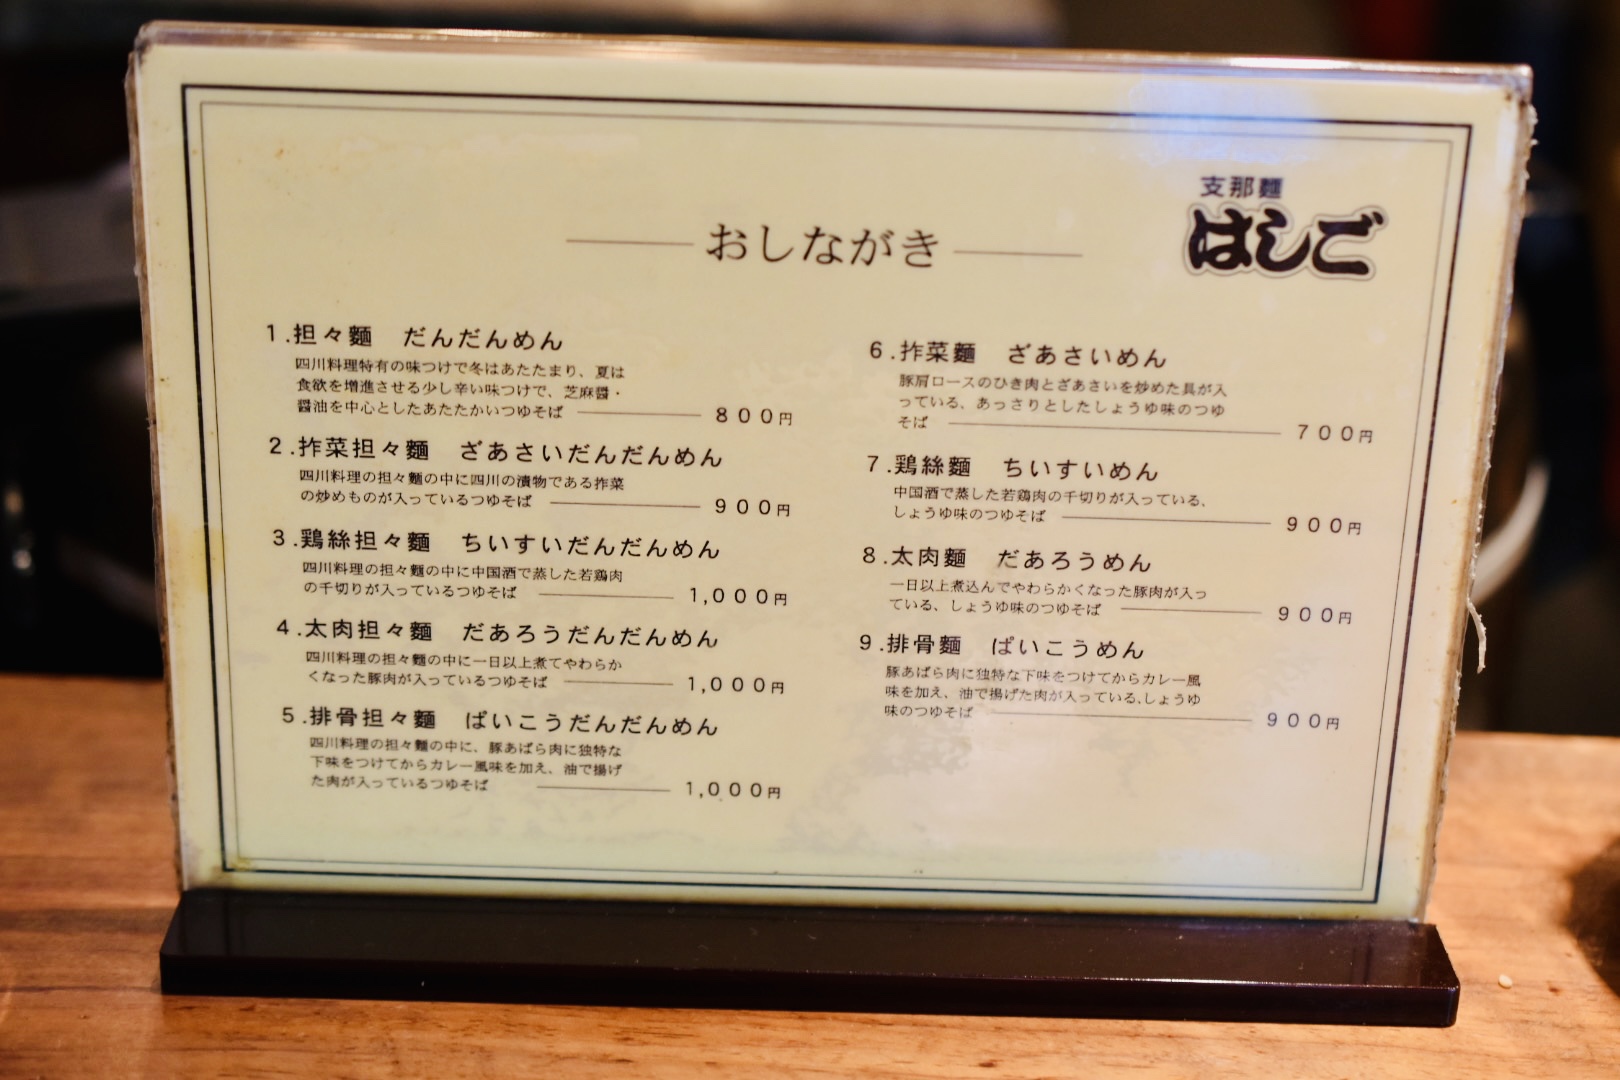 支那麵
はしご
おしながき
1.担々麵 だんだんめん
四川料理特有の味つけで冬はあたたまり、夏は
食欲を増進させる少し辛い味つけで、芝麻醤・
醤油を中心としたあたたかいつゆそば 800円
2.搾菜担々麵 ざあさいだんだんめん
四川料理の担々麵の中に四川の漬物である搾菜
の炒めものが入っているつゆそば 900円
3.鶏絲担々麵 ちいすいだんだんめん
四川料理の担々麵の中に中国酒で蒸した若鶏肉
の千切りが入っているつゆそば 1,000円
4.太肉担々麵 だあろうだんだんめん
四川料理の担々麵の中に一日以上煮てやわらか
くなった豚肉が入っているつゆそば 1,000円
5.排骨担々麵 ぱいこうだんだんめん
四川料理の担々麵の中に、豚あばら肉に独特な
下味をつけてからカレー風味を加え、油で揚げ
た肉が入っているつゆそば 1,000円
6.搾菜麵 ざあさいめん
豚肩ロースのひき肉とざあさいを炒めた具が入
っている、あっさりとしたしょうゆ味のつゆ
そば 700円
7.鶏絲麵 ちいすいめん
中国酒で蒸した若鶏肉の千切りが入っている、
しょうゆ味のつゆそば 900円
8.太肉麵 だあろうめん
一日以上煮込んでやわらかくなった豚肉が入っ
ている、しょうゆ味のつゆそば 900円
9.排骨麵 ぱいこうめん
豚あばら肉に独特な下味をつけてからカレー風
味を加え、油で揚げた肉が入っている、しょうゆ
味のつゆそば 900円